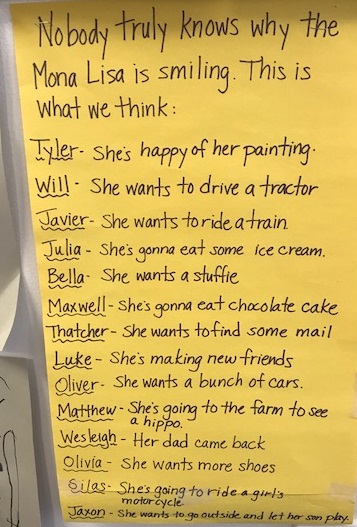 Nobody truly knows why the
Mona Lisa is smiling. This is
what we think:
Tyler- She's happy of her painting.
Will - She wants to drive a tractor
Javier- She wants to ride a train.
Julia - She's gonna eat some ice cream.
Bella- She wants a stuffie
Maxwell - She's gonna eat chocolate cake
Thatcher - She wants to find some mail
Luke - She's making new friends
Oliver - She wants a bunch of cars.
Matthew - She's going to the farm to see
a hippo.
Wesleigh - Her dad came back
Olivia - She wants more shoes
Silas- She's going to ride a girl's
motorcycle.
Jaxon- She wants to go outside and let her son play.